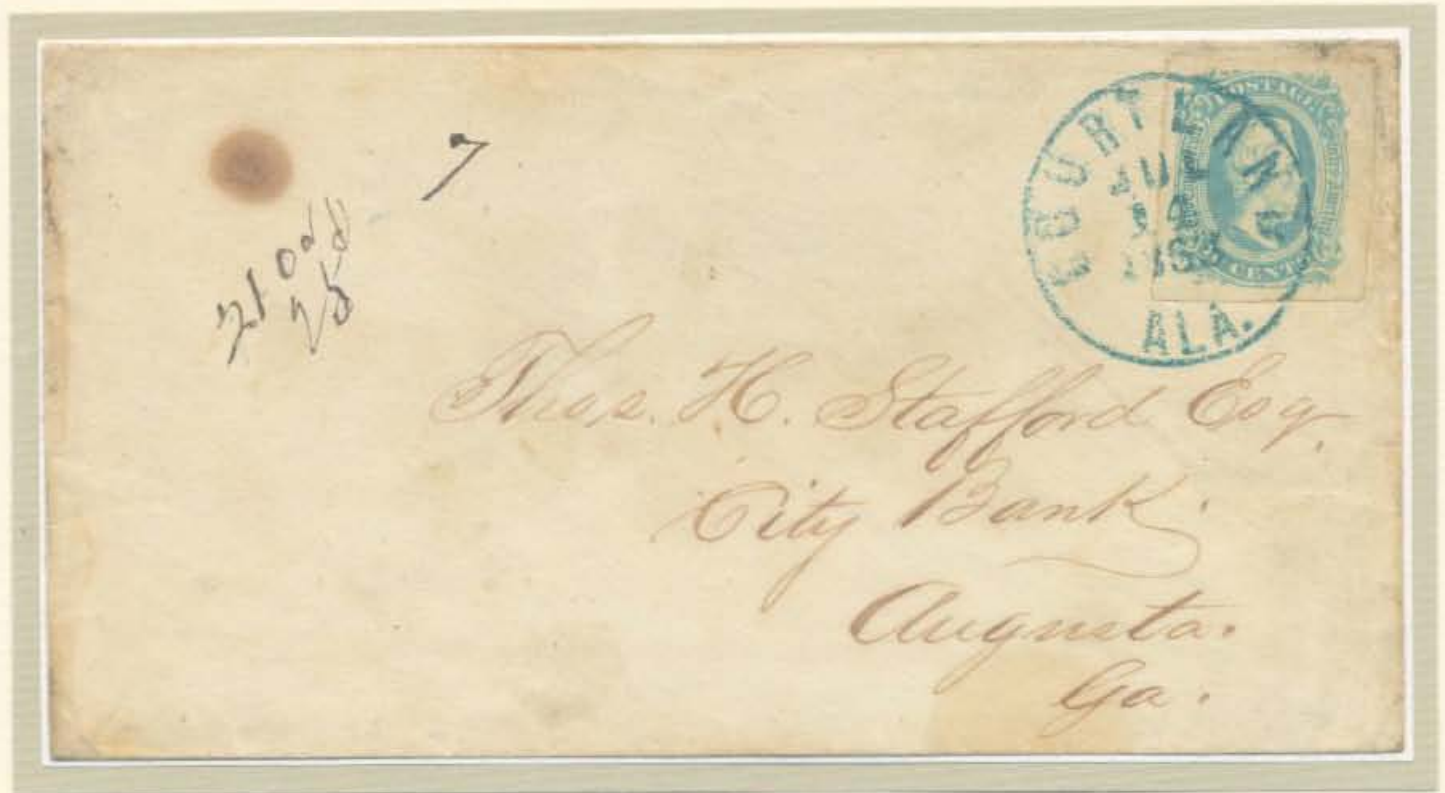 7
COURTLAND
ALA.
POSTAGE
CENTS
Thos. H. Stafford Esq.
City Bank.
Augusta.
Ga.